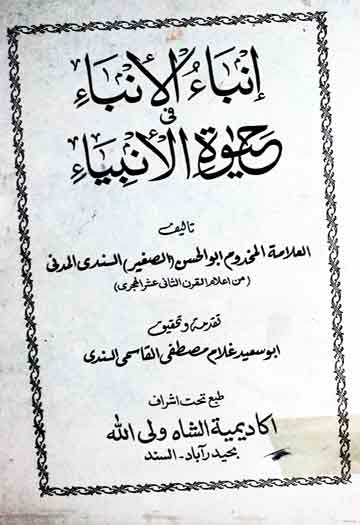 إنباءُ الأنباء
فى
حيوة الأنبياء
تاليف
العلامة المخدوم ابوالحسن (الصغير) السندى المدنى
(من اعلام القرن الثانى عشر الهجرى)
تقدمة وتحقيق
ابوسعيد غلام مصطفى القاسمى السندى
طبع تحت اشراف
اكاديمية الشاه ولى الله
بحيدرآباد - السند